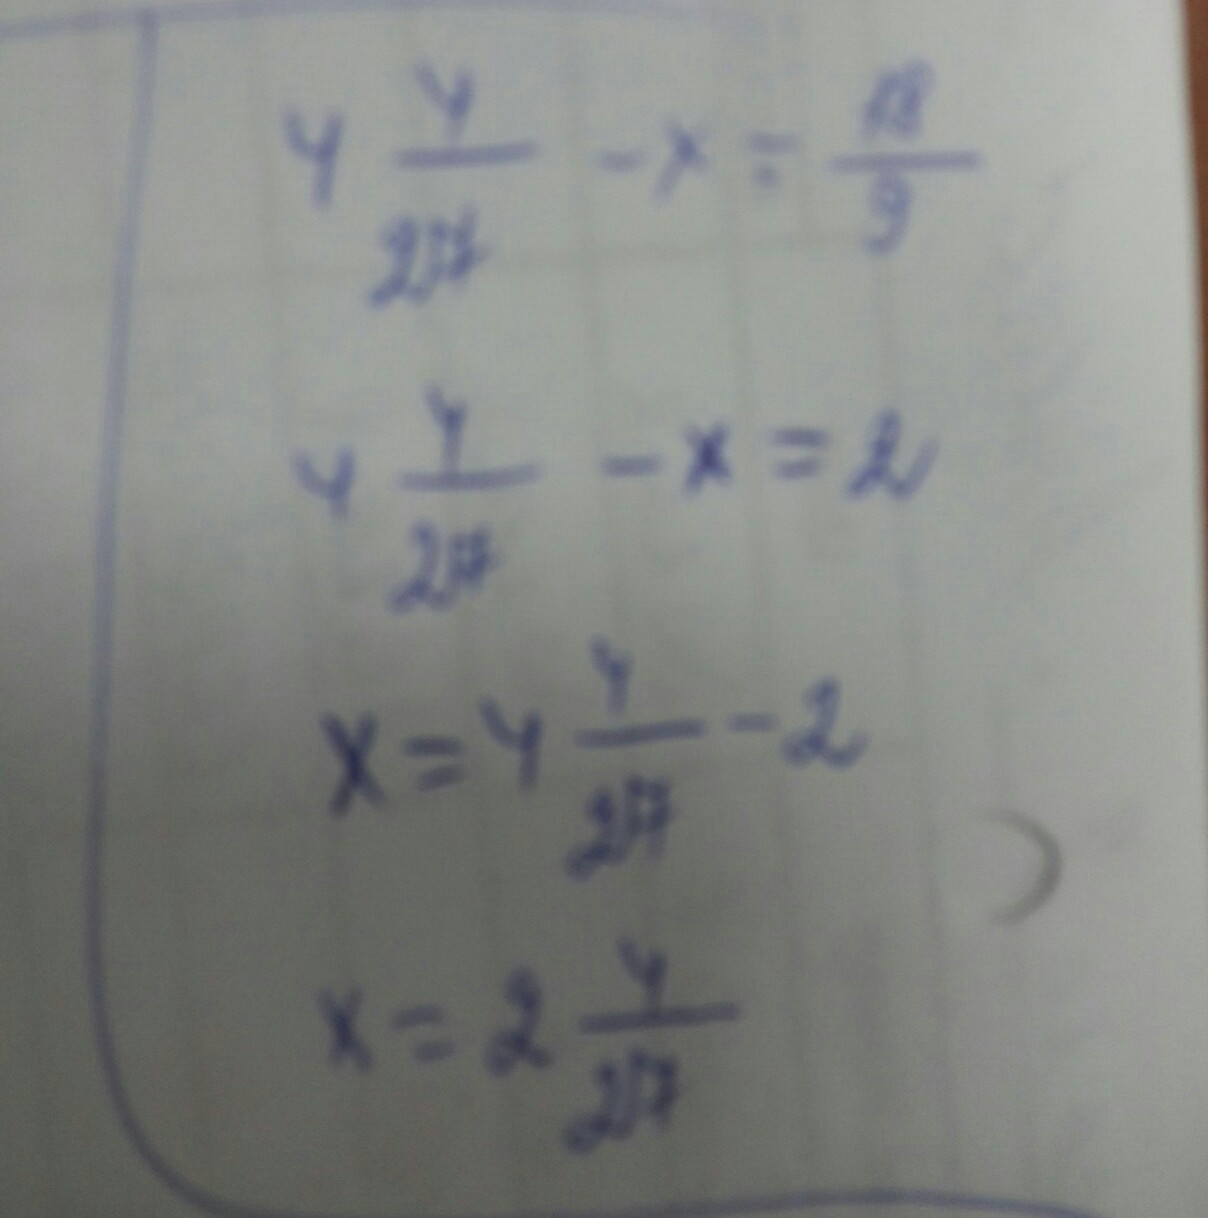 4 4/27 - x = 18/9
4 4/27 - x = 2
x = 4 4/27 - 2
x = 2 4/27